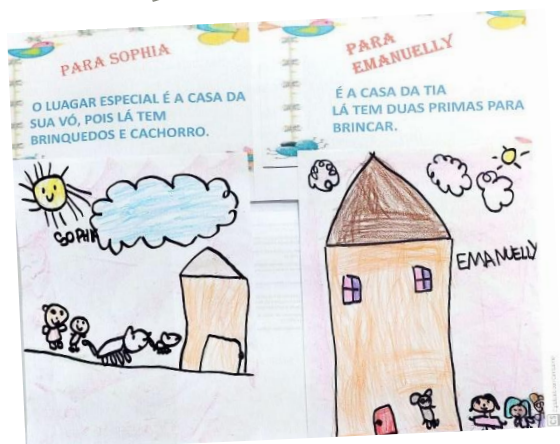 PARA SOPHIA
O LUAGAR ESPECIAL É A CASA DA
SUA VÓ, POIS LÁ TEM
BRINQUEDOS E CACHORRO.
SOPHIA
PARA
EMANUELLY
É A CASA DA TIA
LÁ TEM DUAS PRIMAS PARA
BRINCAR.
EMANUELLY